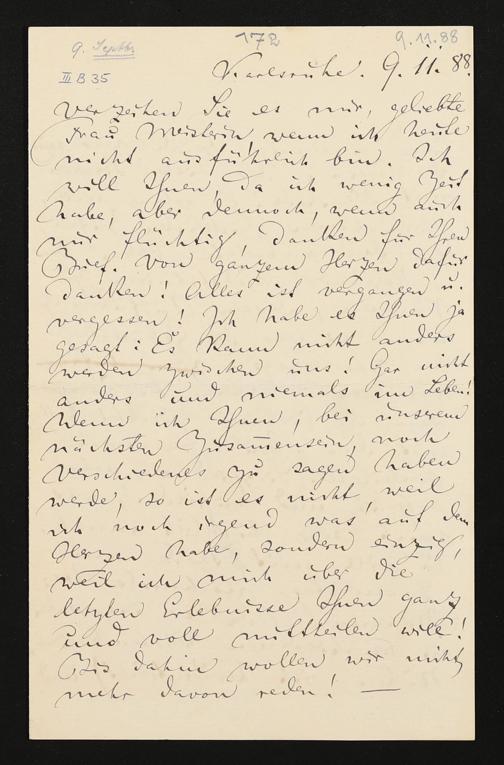 9. Septbr
172
9.11.88
III B 35
Karlsruhe. 9. 11. 88.
Verzeihen Sie es mir, geliebte
Frau Meisterin, wenn ich heute
nicht ausführlich bin. Ich
will Ihnen, da ich wenig Zeit
habe, aber dennoch, wenn auch
nur flüchtig, danken für Ihren
Brief. Von ganzem Herzen dafür
danken! Alles ist vergangen u.
vergessen! Ich habe es Ihnen ja
gesagt: Es kann nicht anders
werden zwischen uns! Gar nicht
anders und niemals im Leben!
Wenn ich Ihnen, bei unserem
nächsten Zusam̅ensein, noch
verschiedenes zu sagen haben
werde, so ist es nicht, weil
ich noch irgend was auf dem
Herzen habe, sondern einzig,
weil ich mich über die
letzten Erlebnisse Ihnen ganz
und voll mittheilen will!
Bis dahin wollen wir nicht
mehr davon reden! —